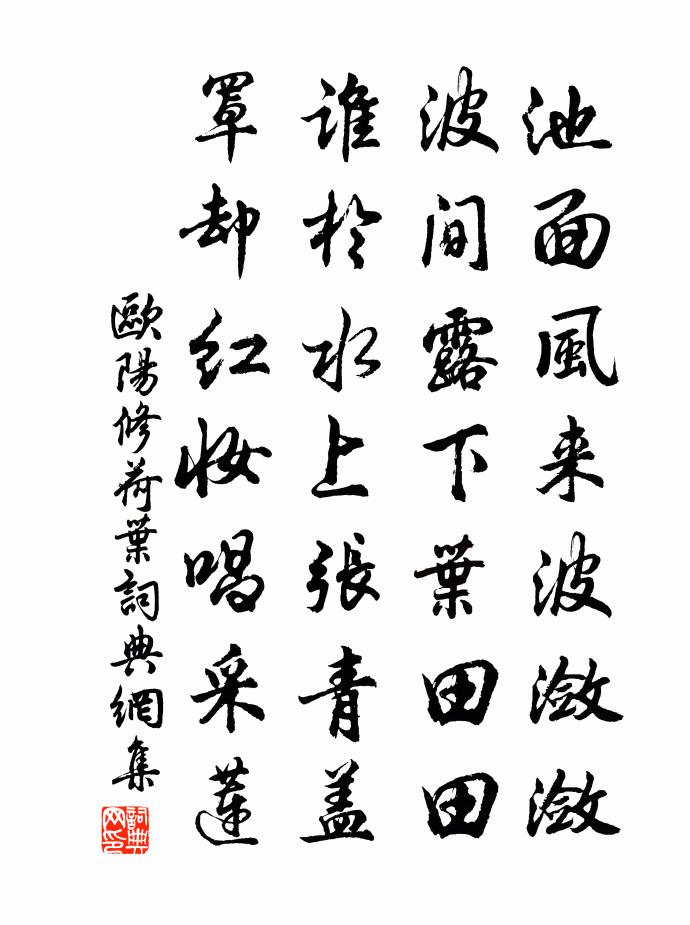 池面風来波瀲瀲
波間露下葉田田
誰於水上張青盖
罩却紅妝唱采蓮
歐陽修荷葉詞典網集
詞典网印